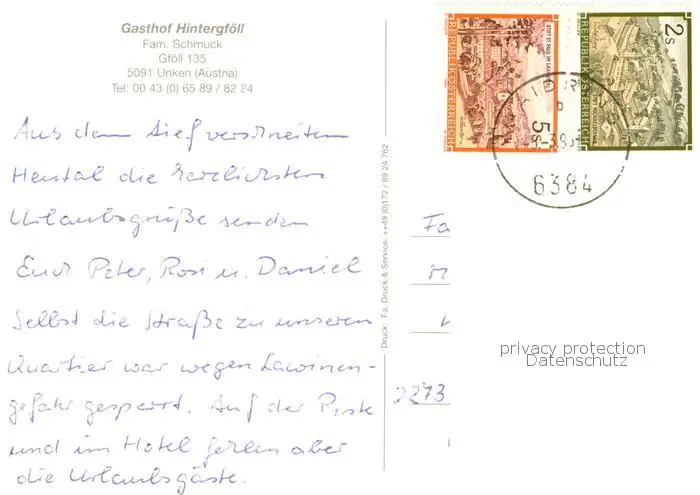 Gasthof Hintergföll
Fam. Schmuck
Gföll 135
5091 Unken (Austria)
Tel: 00 43 (0) 65 89 / 82 24
Aus dem tief verschneiten
Heutal die herzlichsten
Urlaubsgrüße senden
Euch Peter, Rosi u. Daniel
Selbst die Straße zu unseren
Quartier war wegen Lawinen-
gefahr gesperrt. Auf der Piste
und im Hotel fehlen aber
die Urlaubsgäste.
Druck: Fa. Druck & Service: ++49 (0)172 / 89 24 762
REPUBLIK ÖSTERREICH
STIFT ST. PAUL IM LAVANTTAL
5s
2s
REPUBLIK ÖSTERREICH
6384
Fa
2273
privacy protection
Datenschutz